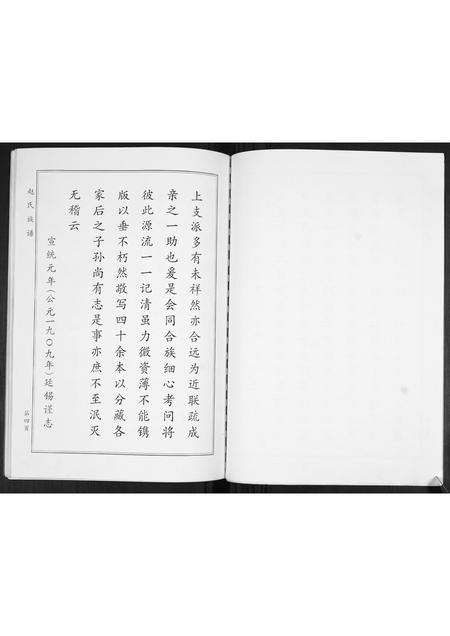 上支派多有未祥然亦合远为近联疏成
亲之一助也爰是会同合族细心考问将
彼此源流一一记清虽力微资薄不能镌
版以垂不朽然敬写四十余本以分藏各
家后之子孙尚有志是事亦庶不至泯灭
无稽云
宣统元年(公元一九〇九年)廷锡谨志
赵氏族谱
第四页